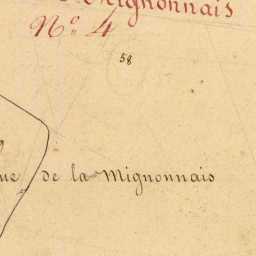 Mignonnais
Nº 4
58
de la Mignonnais